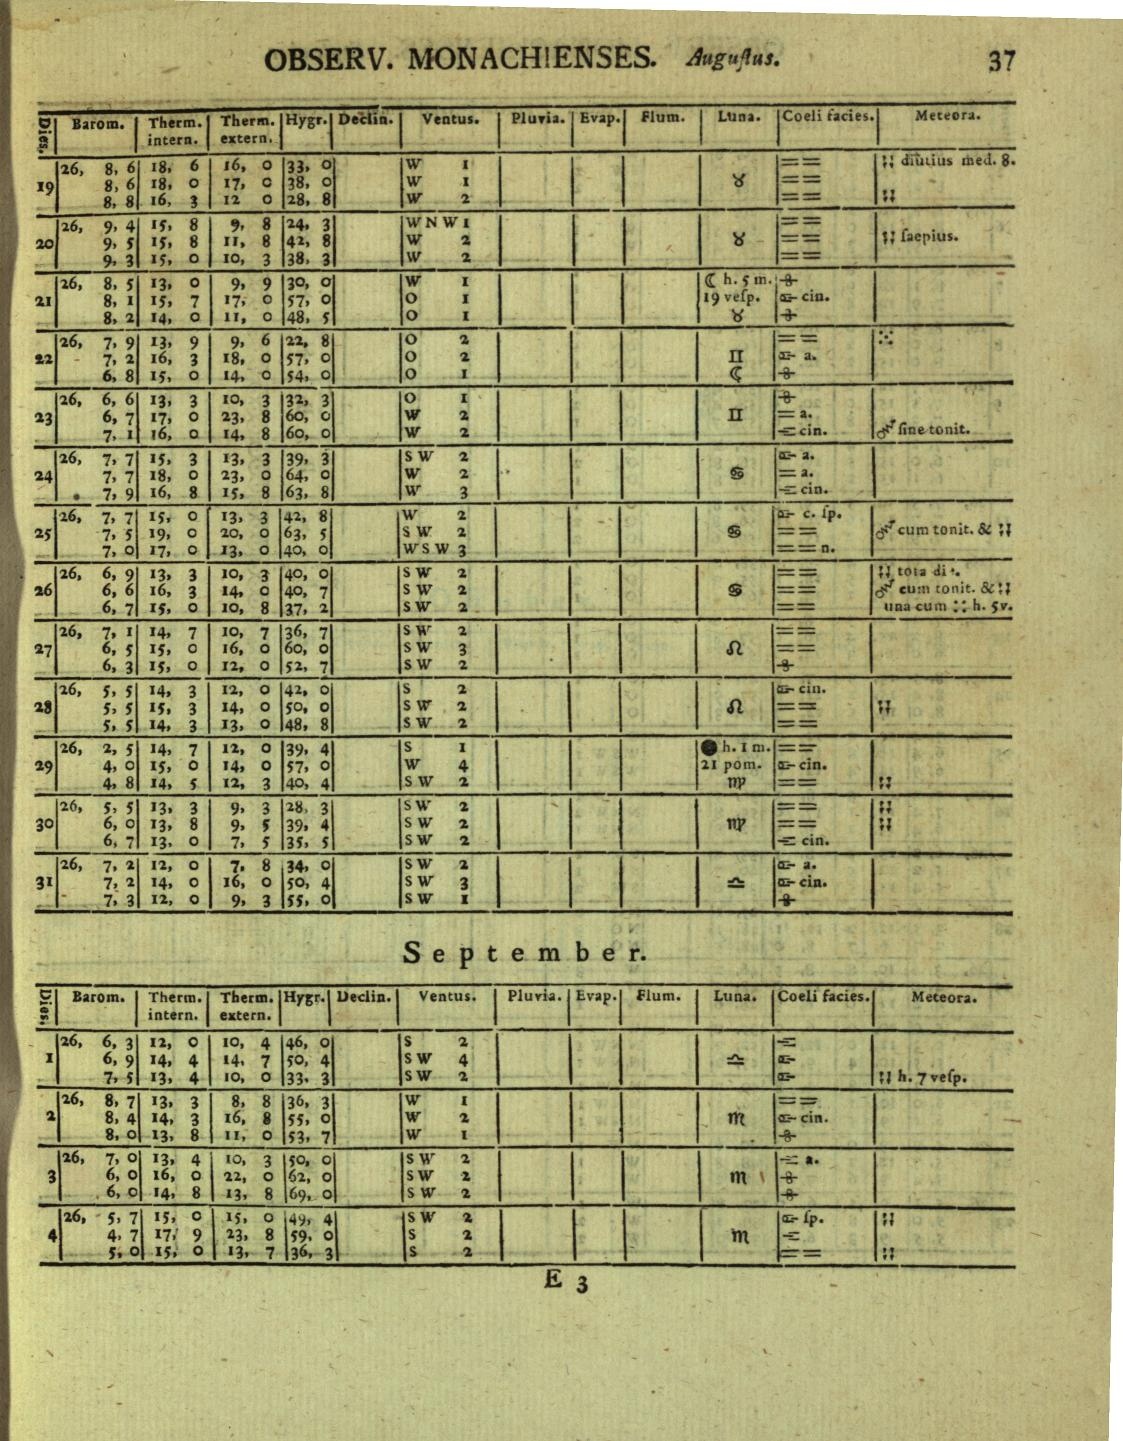 OBSERV. MONACHIENSES. Auguſtus. 37
Dies. Barom. Therm. intern. Therm. extern. Hygr. Declin. Ventus. Pluvia. Evap. Flum. Luna. Coeli facies. Meteora.
26, 8, 6 18, 6 16, 0 33, 0 W 1 == ⁏⁏ diutius med. 8.
19 8, 6 18, 0 17, 0 38, 0 W 1 ♉ ==
8, 8 16, 3 12 0 28, 8 W 2 == ⁏⁏
26, 9, 4 15, 8 9, 8 24, 3 W N W 1 ==
20 9, 5 15, 8 11, 8 42, 8 W 2 ♉ == ⁏⁏ ſaepius.
9, 3 15, 0 10, 3 38, 3 W 2 ==
26, 8, 5 13, 0 9, 9 30, 0 W 1 ☾ h. 5 m.
21 8, 1 15, 7 17, 0 57, 0 O 1 19 veſp. cin.
8, 2 14, 0 11, 0 48, 5 O 1 ♉
26, 7, 9 13, 9 9, 6 22, 8 O 2 ==
22 7, 2 16, 3 18, 0 57, 0 O 2 ♊ a.
6, 8 15, 0 14, 0 54, 0 O 1 ☾
26, 6, 6 13, 3 10, 3 32, 3 O 1
23 6, 7 17, 0 23, 8 60, 0 W 2 ♊ = a.
7, 1 16, 0 14, 8 60, 0 W 2 cin. ſine tonit.
26, 7, 7 15, 3 13, 3 39, 3 S W 2 a.
24 7, 7 18, 0 23, 0 64, 0 W 2 ♋ = a.
7, 9 16, 8 15, 8 63, 8 W 3 cin.
26, 7, 7 15, 0 13, 3 42, 8 W 2 c. ſp.
25 7, 5 19, 0 20, 0 63, 5 S W 2 ♋ == cum tonit. & ⁏⁏
7, 0 17, 0 13, 0 40, 0 W S W 3 == n.
26, 6, 9 13, 3 10, 3 40, 0 S W 2 == ⁏⁏ tota
26 6, 6 16, 3 14, 0 40, 7 S W 2 ♋ == cum tonit. & ⁏⁏
6, 7 15, 0 10, 8 37, 2 S W 2 == una cum :: h. 5v.
26, 7, 1 14, 7 10, 7 36, 7 S W 2 ==
27 6, 5 15, 0 16, 0 60, 0 S W 3 ♌ ==
6, 3 15, 0 12, 0 52, 7 S W 2
26, 5, 5 14, 3 12, 0 42, 0 S 2 cin.
28 5, 5 15, 3 14, 0 50, 0 S W 2 ♌ == ⁏⁏
5, 5 14, 3 13, 0 48, 8 S W 2 ==
26, 2, 5 14, 7 12, 0 39, 4 S 1 ● h. 1 m. ==
29 4, 0 15, 0 14, 0 57, 0 W 4 21 pom. cin.
4, 8 14, 5 12, 3 40, 4 S W 2 ♍ == ⁏⁏
26, 5, 5 13, 3 9, 3 28, 3 S W 2 == ⁏⁏
30 6, 0 13, 8 9, 5 39, 4 S W 2 ♍ == ⁏⁏
6, 7 13, 0 7, 5 35, 5 S W 2 cin.
26, 7, 2 12, 0 7, 8 34, 0 S W 2 a.
31 7, 2 14, 0 16, 0 50, 4 S W 3 ♎ cin.
7, 3 12, 0 9, 3 55, 0 S W 1
September.
Dies. Barom. Therm. intern. Therm. extern. Hygr. Declin. Ventus. Pluvia. Evap. Flum. Luna. Coeli facies. Meteora.
26, 6, 3 12, 0 10, 4 46, 0 S 2
1 6, 9 14, 4 14, 7 50, 4 S W 4 ♎
7, 5 13, 4 10, 0 33, 3 S W 2 ⁏⁏ h. 7 veſp.
26, 8, 7 13, 3 8, 8 36, 3 W 1 ==
2 8, 4 14, 3 16, 8 55, 0 W 2 ♏ cin.
8, 0 13, 8 11, 0 53, 7 W 1
26, 7, 0 13, 4 10, 3 50, 0 S W 2 a.
3 6, 0 16, 0 22, 0 62, 0 S W 2 ♏
6, 0 14, 8 13, 8 69, 0 S W 2
26, 5, 7 15, 0 15, 0 49, 4 S W 2 ſp. ⁏⁏
4 4, 7 17, 9 23, 8 59, 0 S 2 ♏
5, 0 15, 0 13, 7 36, 3 S 2 == ⁏⁏
E 3